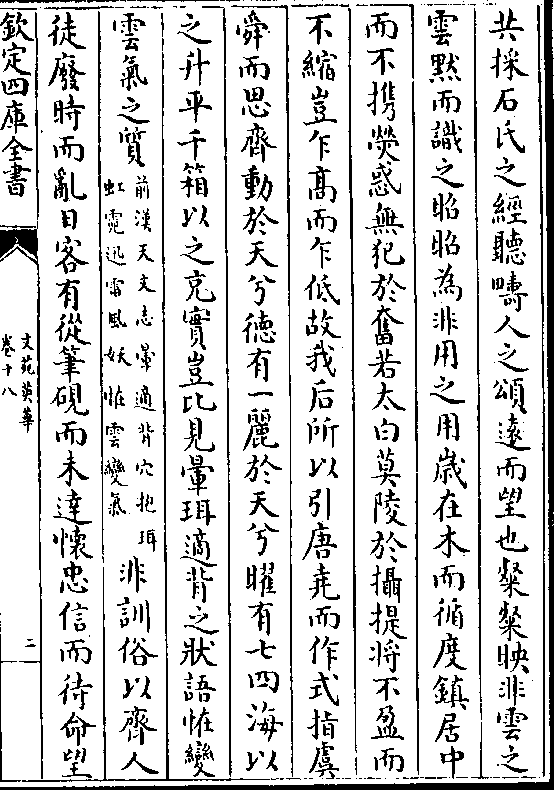 共採石氏之經聽疇人之頌逺而望也粲粲映非雲之
雲黙而識之昭昭為非用之用歳在木而循度鎮居中
而不携熒惑無犯於奮若太白莫陵於攝提将不盈而
不縮豈乍髙而乍低故我后所以引唐堯而作式指虞
舜而思齊動於天兮德有一麗於天兮曜有七四海以
之升平千箱以之充實豈比見暈珥適背之狀語恠變
雲氣之質前漢天文志暈適背穴抱珥
虹霓迅雷風妖恠雲變氣非訓俗以齊人
徒廢時而亂日客有從筆硯而未達懷忠信而待命望
欽定四庫全書
文苑英華
卷十八
二